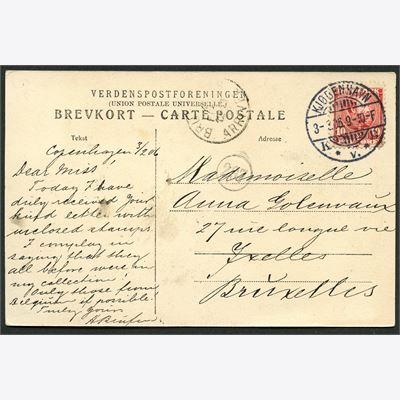 VERDENSPOSTFORENINGEN
(UNION POSTALE UNIVERSELLE.)
BREVKORT — CARTE POSTALE
Tekst
Adresse
Copenhagen 3/2 06
Dear Miss!
Today I have
duly received your
kind letter with
enclosed stamps.
I complay in
saying that they
all before were in
my collection!
Only those from
Belgium if possible!
Truly yours
Mademoiselle
Anna
27 rue longue vie
Ixelles
Bruxelles
KJØBENHAVN
K.
V.